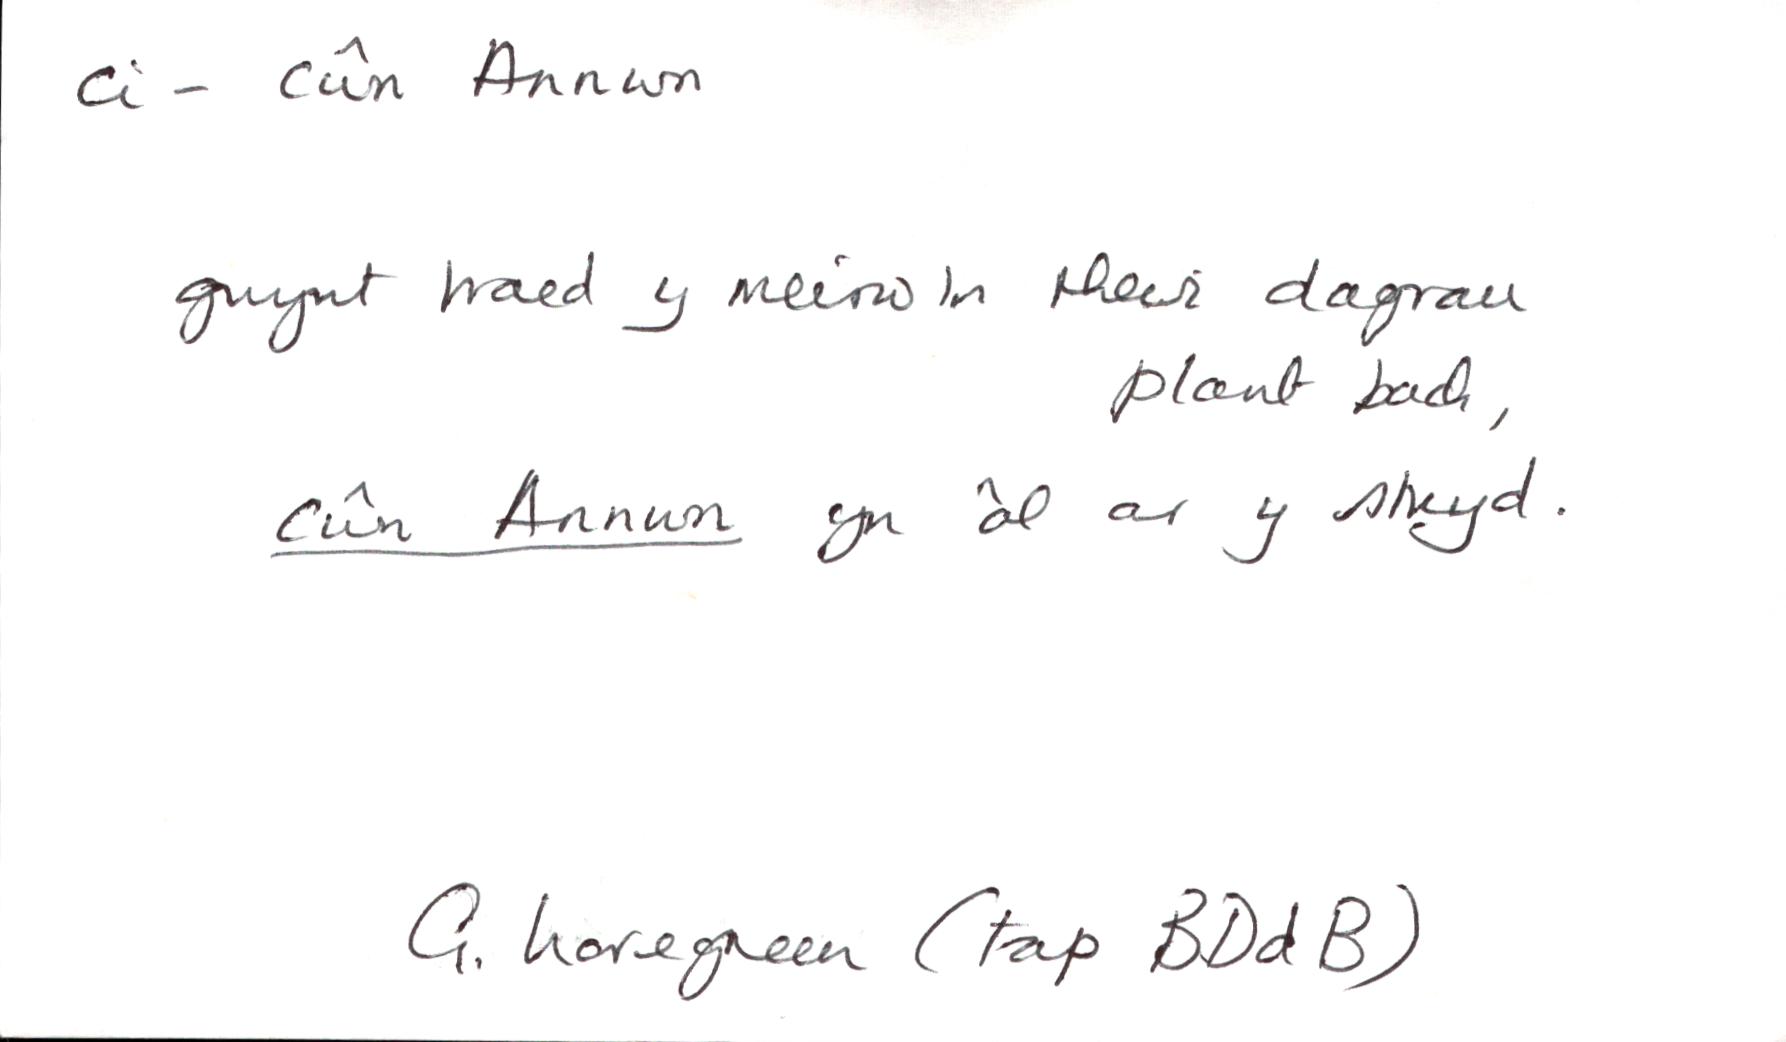 ci - cŵn Annwn
gwynt traed y meirw'n rhewi dagrau
plant bach,
cŵn Annwn yn ôl ar y stryd.
G. Lovegreen (tap BDdB)